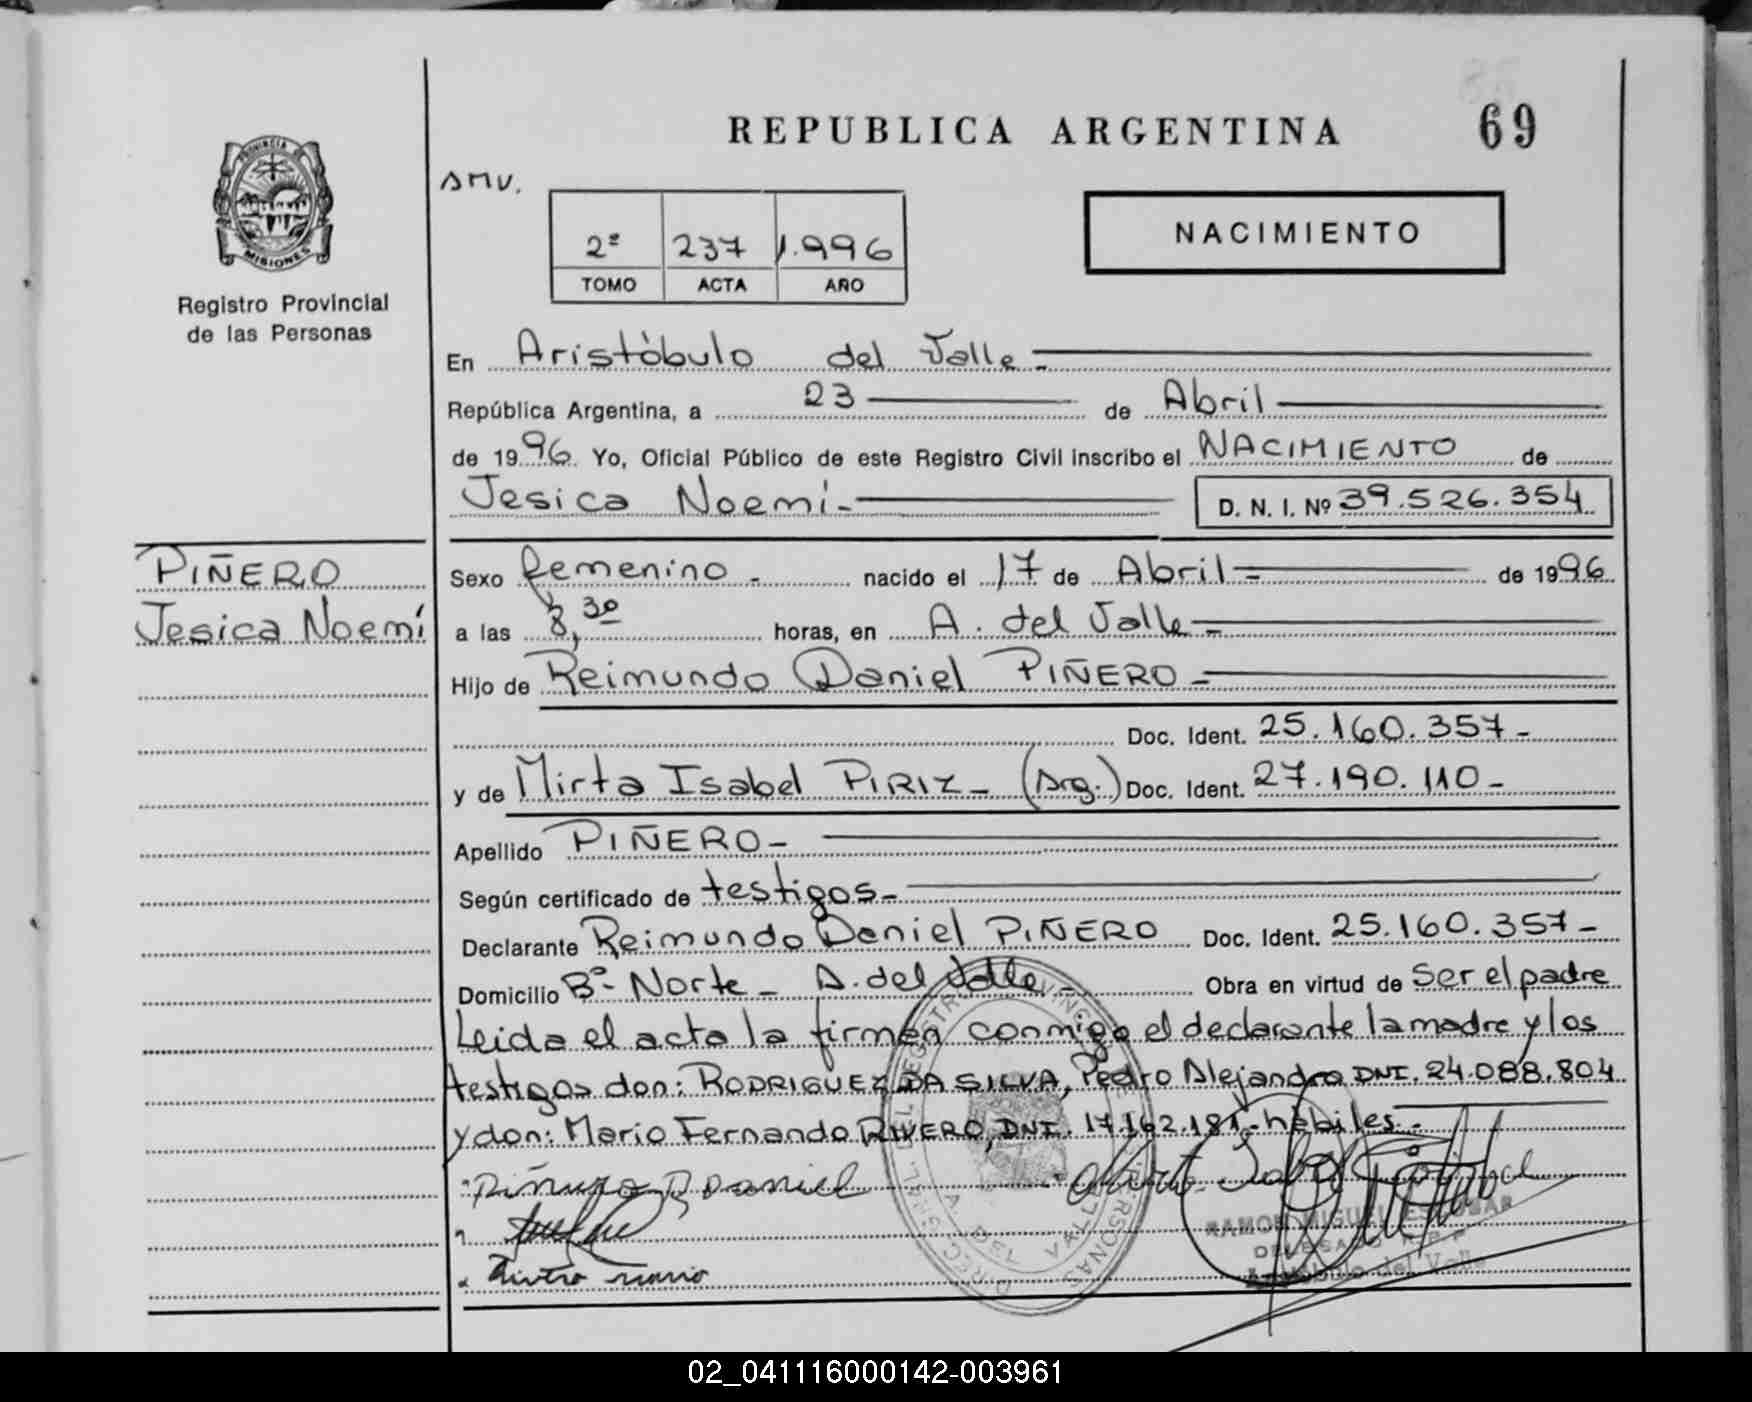 REPUBLICA ARGENTINA
69
AMV.
PROVINCIA DE
MISIONES
Registro Provincial
de las Personas
2º 237 1.996
TOMO ACTA AÑO
NACIMIENTO
En Aristóbulo del Valle -
República Argentina, a 23 de Abril
de 1996. Yo, Oficial Público de este Registro Civil inscribo el NACIMIENTO de
Jesica Noemí - D. N. I. Nº 39.526.354
PIÑERO
Jesica Noemí
Sexo femenino - nacido el 17 de Abril - de 1996
a las 8,30 horas, en A. del Valle -
Hijo de Reimundo Daniel PIÑERO -
Doc. Ident. 25.160.357 -
y de Mirta Isabel PIRIZ - (Arg.) Doc. Ident. 27.190.110 -
Apellido PIÑERO -
Según certificado de testigos -
Declarante Reimundo Daniel PIÑERO Doc. Ident. 25.160.357 -
Domicilio Bº Norte - A. del Valle - Obra en virtud de Ser el padre
Leida el acta la firman conmigo el declarante la madre y los
testigos don: RODRIGUEZ DA SILVA, Pedro Alejandro DNI. 24.088.804
y don: Mario Fernando RIVERO, DNI. 17.162.181 - hábiles -
RAMON MIGUEL ESCOBAR
DELEGADO R.P.P.
Aristóbulo del Valle
02_041116000142-003961